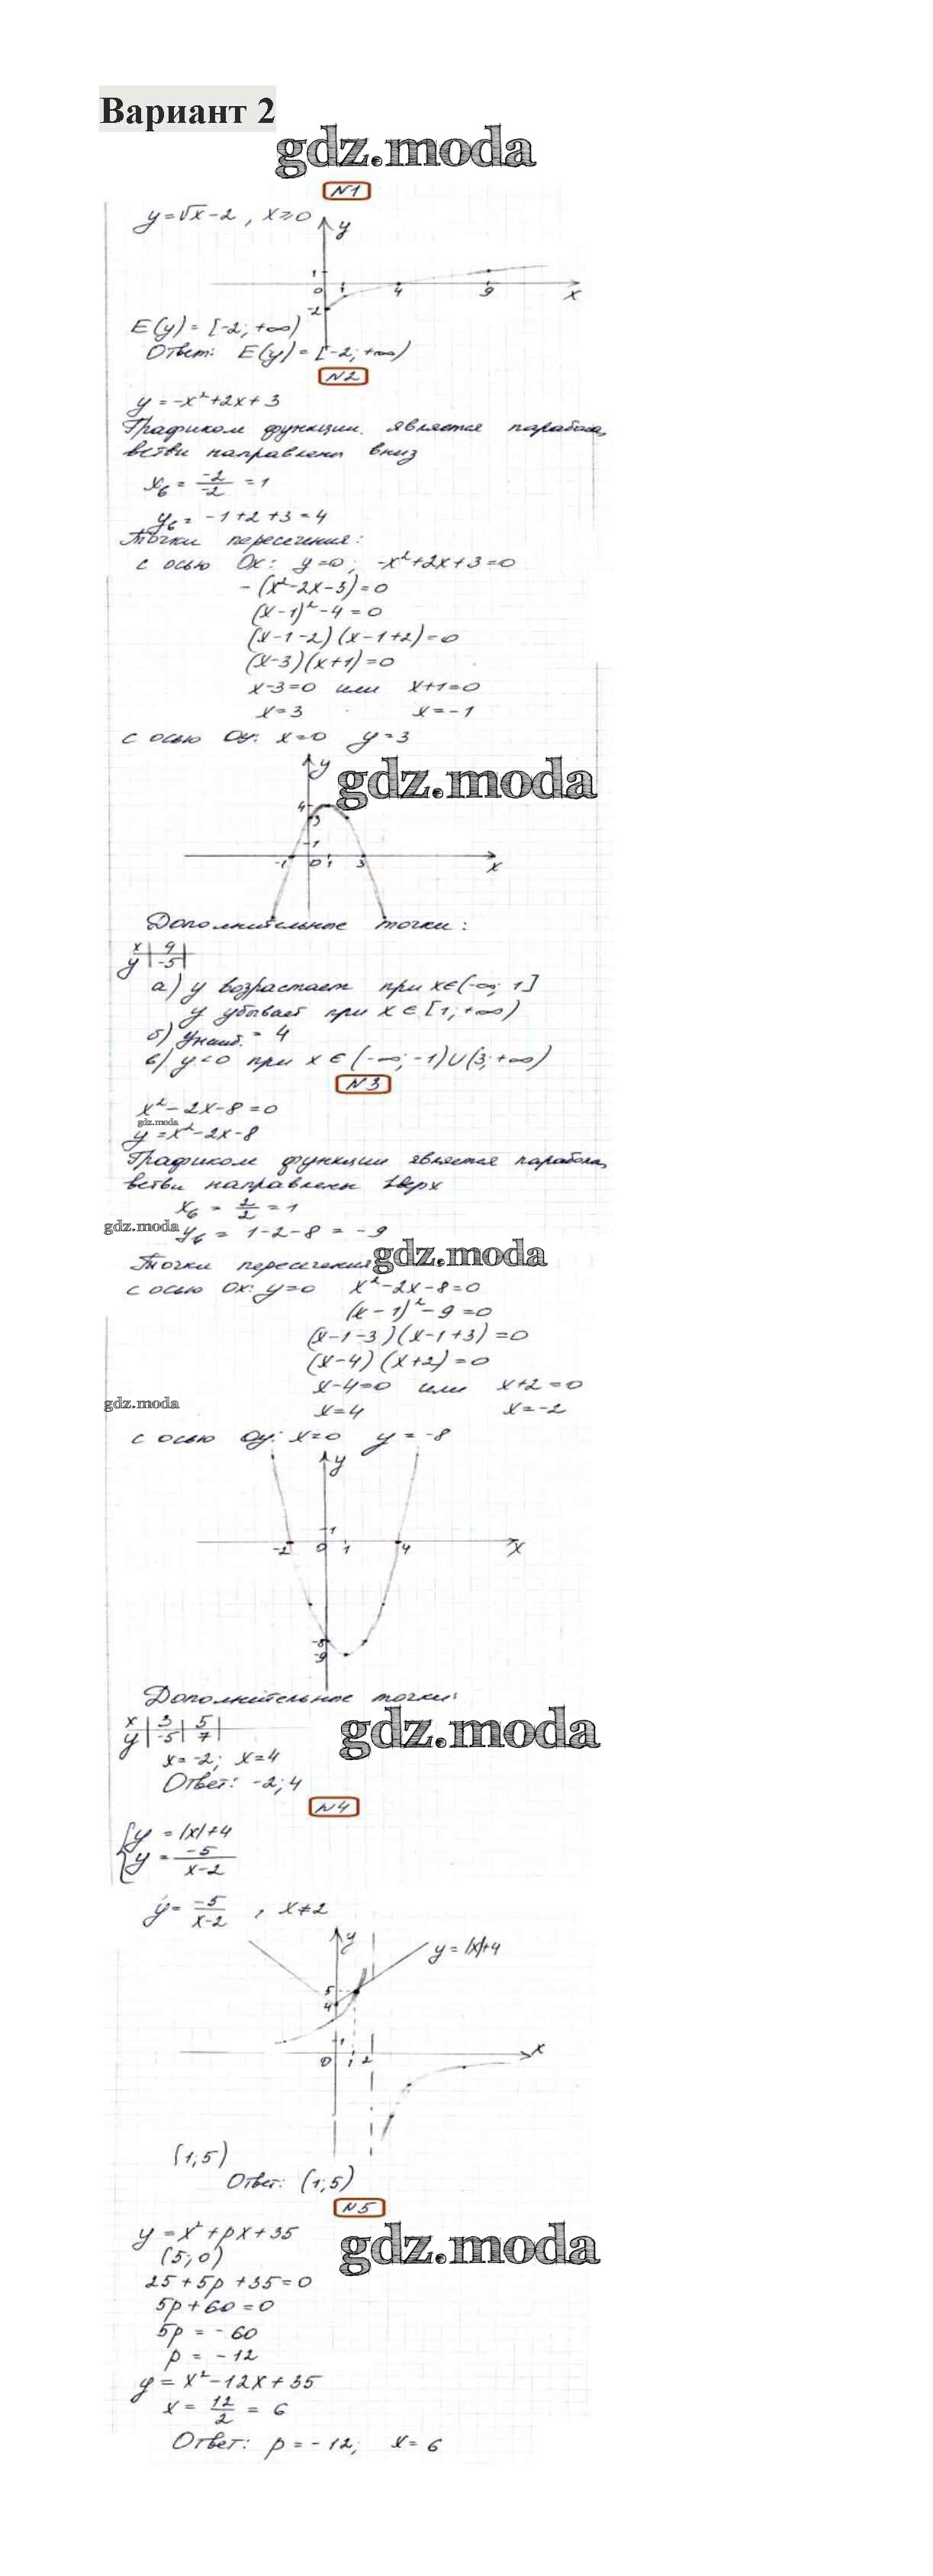 Вариант 2
gdz.moda
N1
y=√x-2, x≥0
y
1
0 1 4 9 x
-2
E(y)=[-2;+∞)
Ответ: E(y)=[-2;+∞)
N2
y=-x²+2x+3
Графиком функции является парабола,
ветви направлены вниз
xв = -2/-2 = 1
yв = -1+2+3=4
Точки пересечения:
с осью Ox: y=0; -x²+2x+3=0
-(x²-2x-3)=0
(x-1)²-4=0
(x-1-2)(x-1+2)=0
(x-3)(x+1)=0
x-3=0 или x+1=0
x=3 x=-1
с осью Oy: x=0 y=3
y
gdz.moda
4
3
1
-1 0 1 3 x
Дополнительные точки:
x | 4 |
y | -5 |
а) y возрастает при x∈(-∞; 1]
y убывает при x∈[1;+∞)
б) yнаиб. = 4
в) y<0 при x∈(-∞;-1)∪(3;+∞)
N3
x²-2x-8=0
gdz.moda
y=x²-2x-8
Графиком функции является парабола,
ветви направлены вверх
xв = 2/2 = 1
gdz.moda
yв = 1-2-8 = -9
Точки пересечения
gdz.moda
с осью Ox: y=0 x²-2x-8=0
(x-1)²-9=0
(x-1-3)(x-1+3)=0
(x-4)(x+2)=0
x-4=0 или x+2=0
gdz.moda
x=4 x=-2
с осью Oy: x=0 y=-8
y
1
-2 0 1 4 x
-8
-9
Дополнительные точки:
gdz.moda
x | 3 | 5 |
y | -5 | 7 |
x=-2; x=4
Ответ: -2; 4
N4
{y = |x|+4
y = -5/x-2
y = -5/x-2, x≠2
y
y=|x|+4
5
4
1
0 1 2 x
(1;5)
Ответ: (1;5)
N5
y=x²+px+35
gdz.moda
(5;0)
25+5p+35=0
5p+60=0
5p = -60
p = -12
y = x²-12x+35
x = 12/2 = 6
Ответ: p=-12; x=6